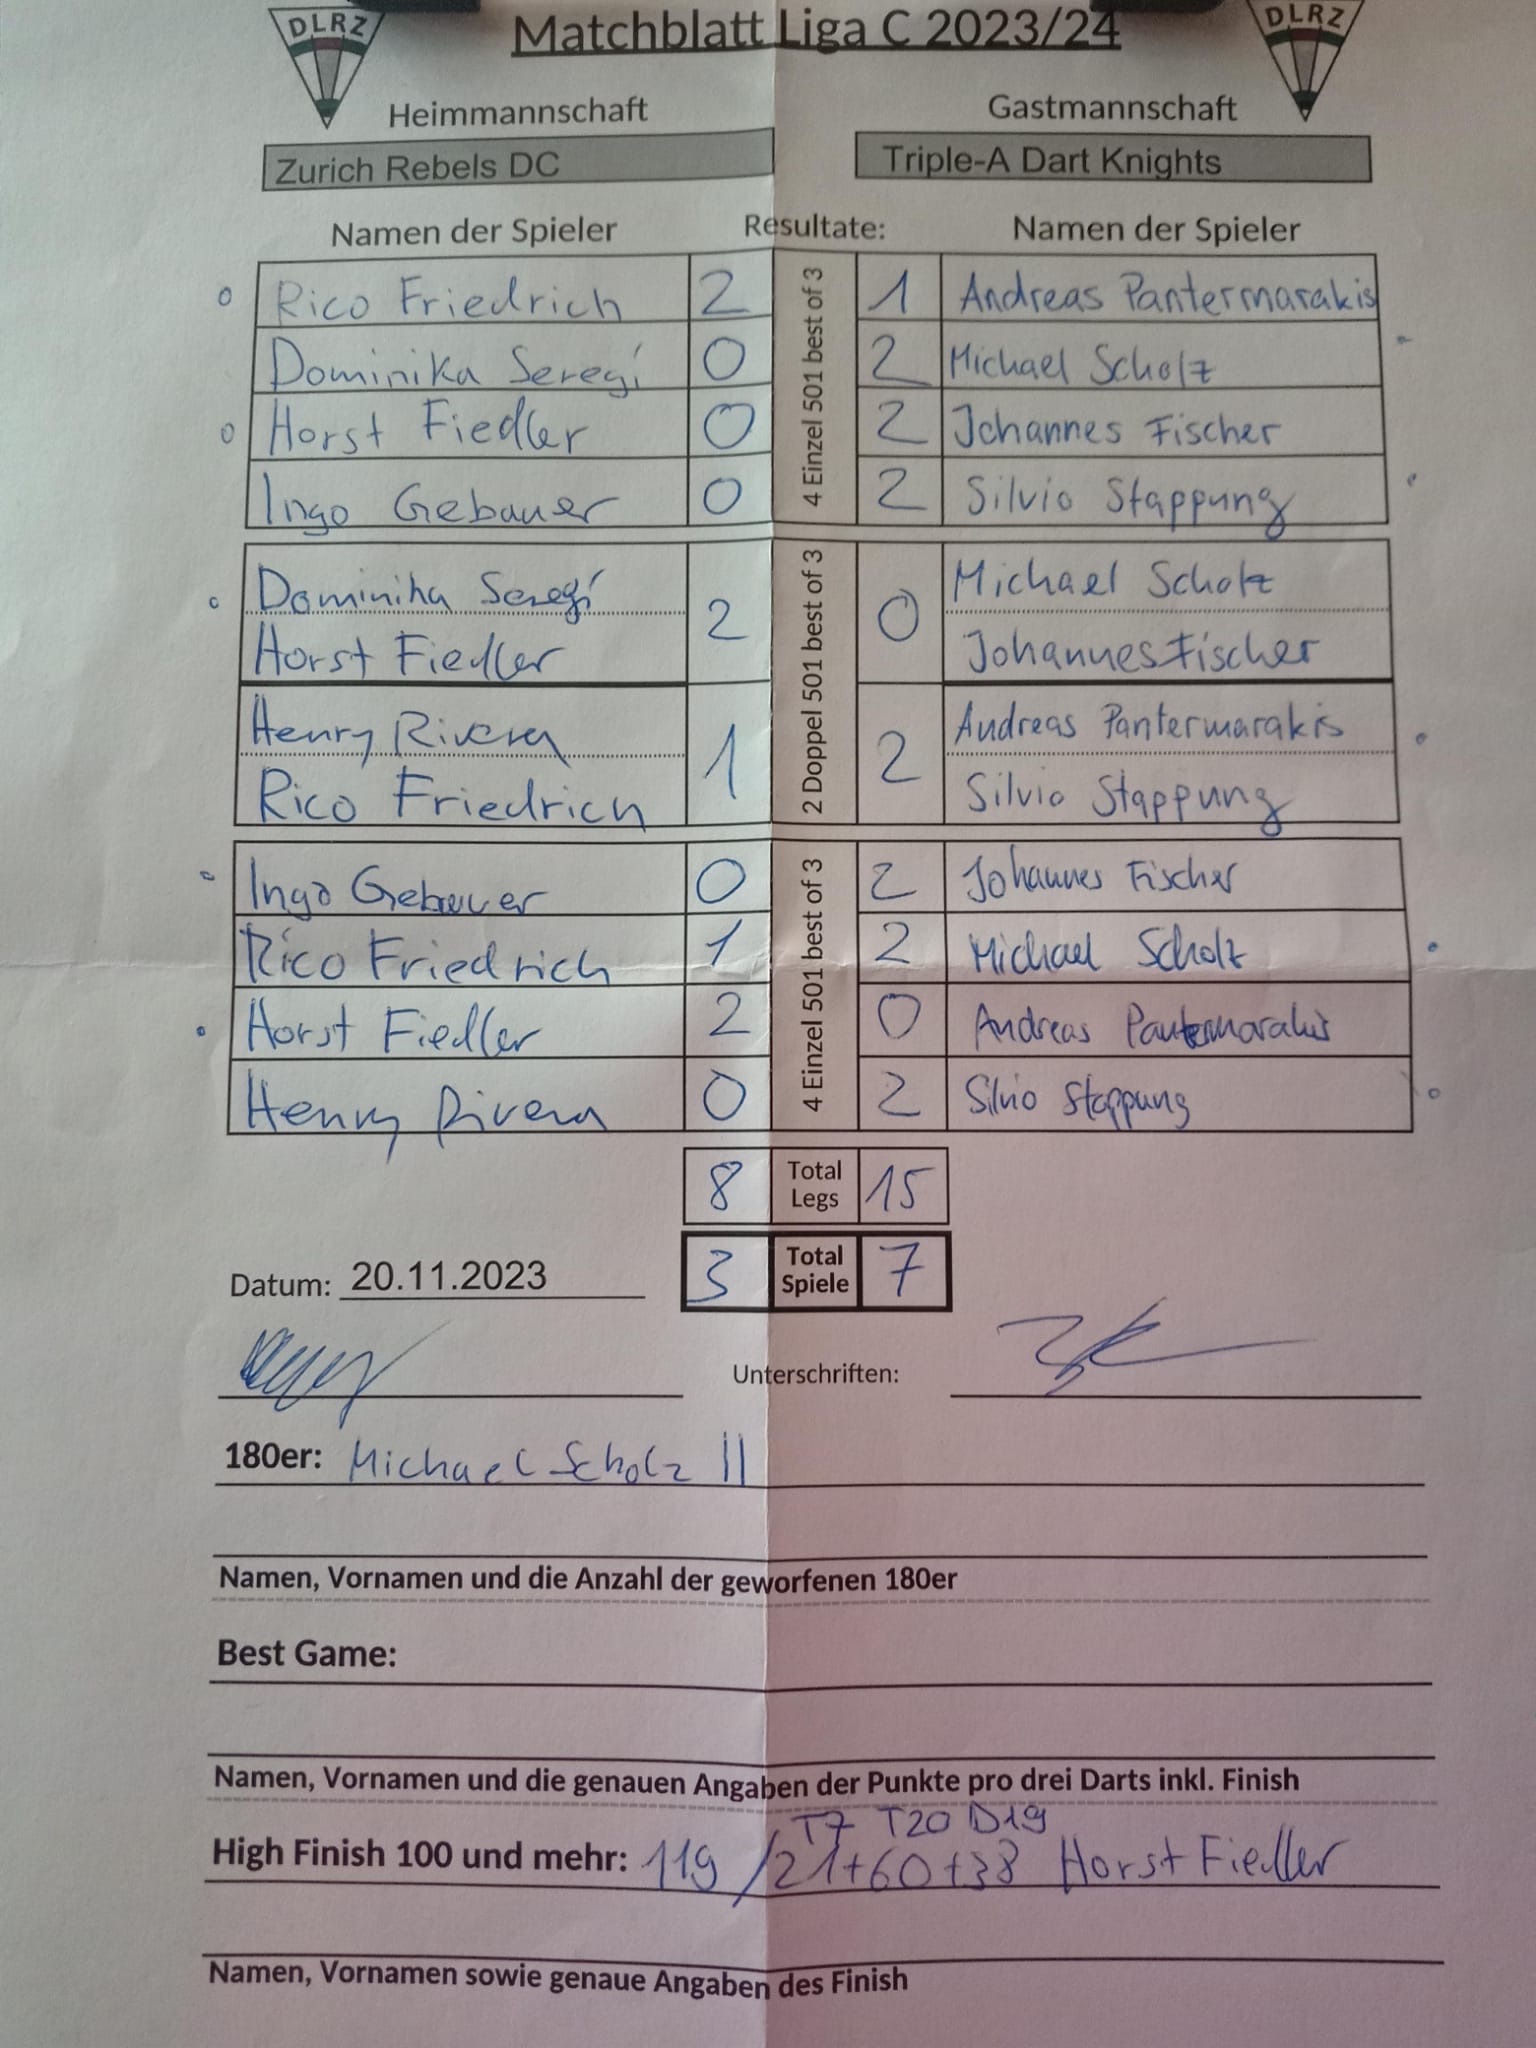 DLRZ Matchblatt Liga C 2023/24 DLRZ
Heimmannschaft Gastmannschaft
Zurich Rebels DC Triple-A Dart Knights
Namen der Spieler Resultate: Namen der Spieler
4 Einzel 501 best of 3
Rico Friedrich 2 1 Andreas Pantermarakis
Dominika Seregi 0 2 Michael Scholz
Horst Fiedler 0 2 Johannes Fischer
Ingo Gebauer 0 2 Silvio Stappung
2 Doppel 501 best of 3
Dominika Seregi 2 0 Michael Scholz
Horst Fiedler Johannes Fischer
Henry Rivera 1 2 Andreas Pantermarakis
Rico Friedrich Silvio Stappung
4 Einzel 501 best of 3
Ingo Gebauer 0 2 Johannes Fischer
Rico Friedrich 1 2 Michael Scholz
Horst Fiedler 2 0 Andreas Pantermarakis
Henry Rivera 0 2 Silvio Stappung
8 Total Legs 15
Datum: 20.11.2023 3 Total Spiele 7
Unterschriften:
180er: Michael Scholz ||
Namen, Vornamen und die Anzahl der geworfenen 180er
Best Game:
Namen, Vornamen und die genauen Angaben der Punkte pro drei Darts inkl. Finish
T7 T20 D19
High Finish 100 und mehr: 119 / 21+60+38 Horst Fiedler
Namen, Vornamen sowie genaue Angaben des Finish